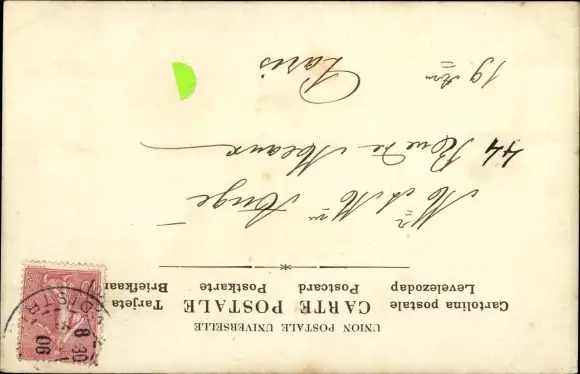 UNION POSTALE UNIVERSELLE
CARTE POSTALE
Cartolina postale Tarjeta
Levelezodap Postcard Postkarte Briefkaar
Mr et Mme Angé
44 Rue de Meaux
Paris
19 arr
8 30
06